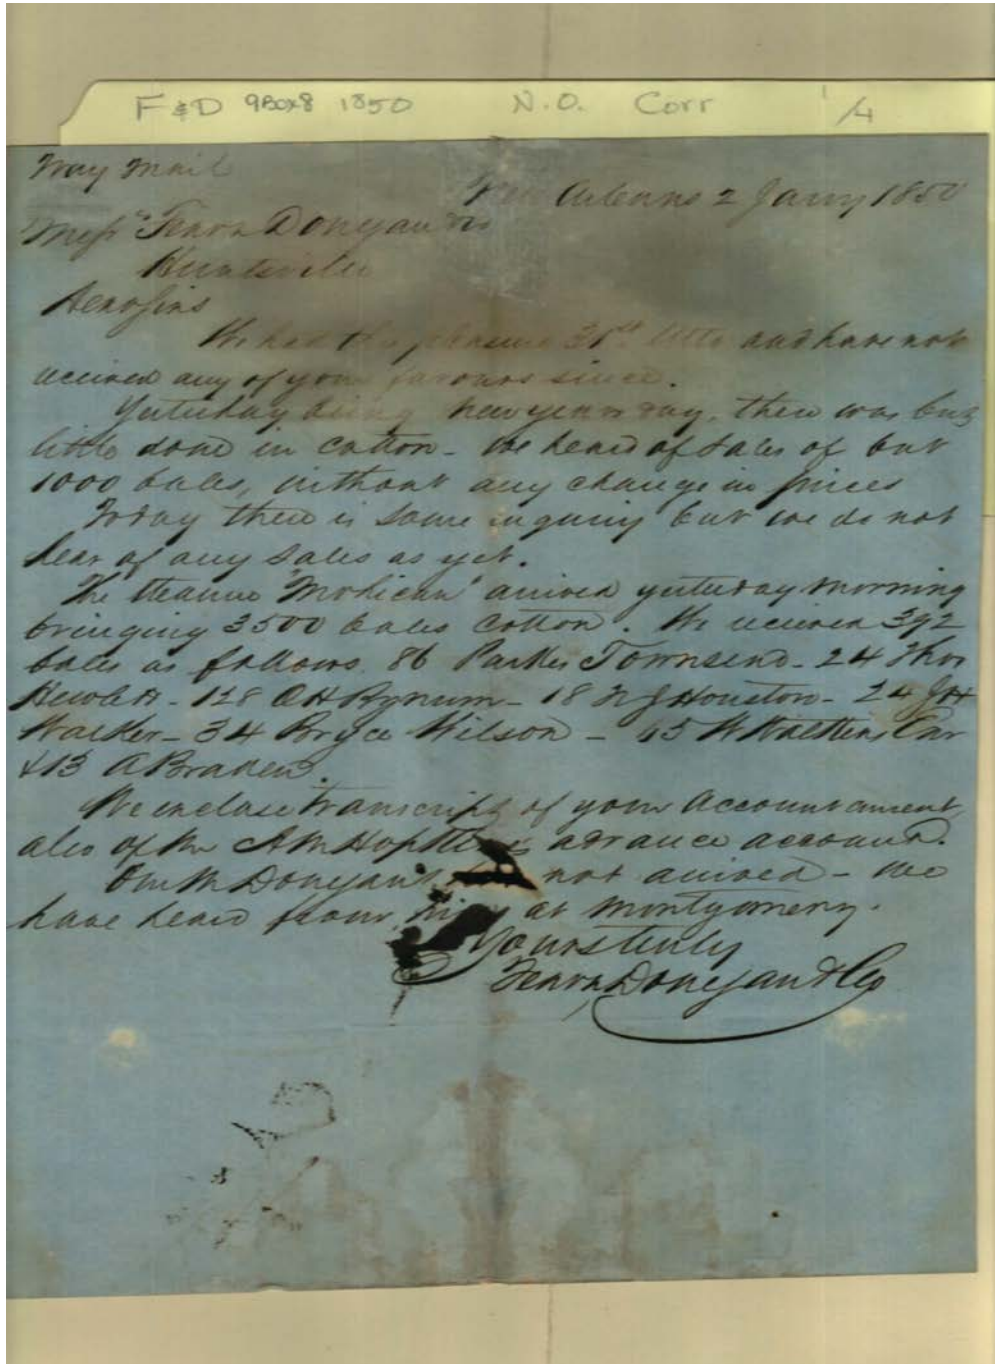 F & D 9Box8 1850 N.O. Corr 1/4
Way Mail
New Orleans 2 Jany 1850
Messrs Fearn Donegan & Co
Huntsville
Dear Sirs
We had this pleasure 31st Ulto and have not
received any of your favours since.
Yesterday being New years day, there was but
little done in cotton - We heard of Sales of but
1000 bales, without any change in prices
Today there is some inquiry but we do not
hear of any Sales as yet.
The Steamer "Mohican" arrived yesterday morning
bringing 3500 bales Cotton. We received 392
bales as follows. 86 Parkes Townsend - 24 Thos
Hewlett - 128 O H Bynum - 18 Houston - 24
Walker - 34 Bryce Wilson - 65 W Watkins
& 13 A Braden.
We enclose transcript of your Account current
also of Mr A M Hopkins advance account.
Our Mr Donegan not arrived - We
have heard from him at Montgomery.
Yours truly
Fearn Donegan & Co